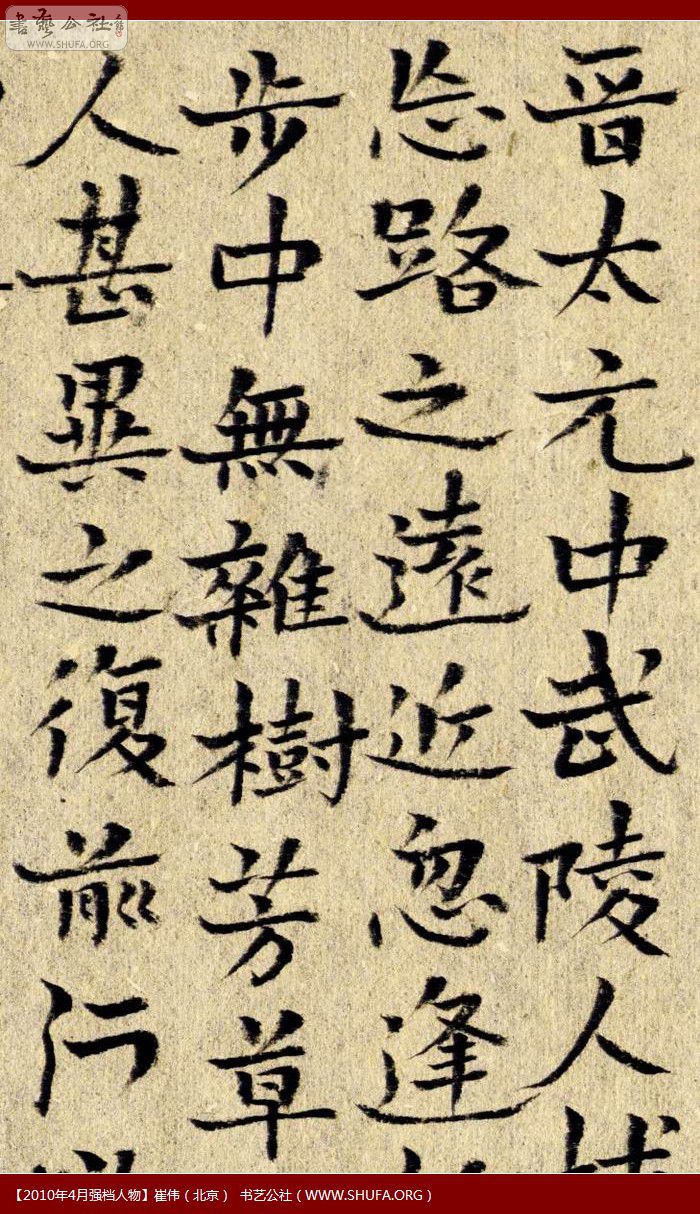 書藝公社
WWW.SHUFA.ORG
晋太元中武陵人
忘路之遠近忽逢
步中無雜樹芳草
人甚異之復前行
【2010年4月强档人物】崔伟（北京） 书艺公社（WWW.SHUFA.ORG）